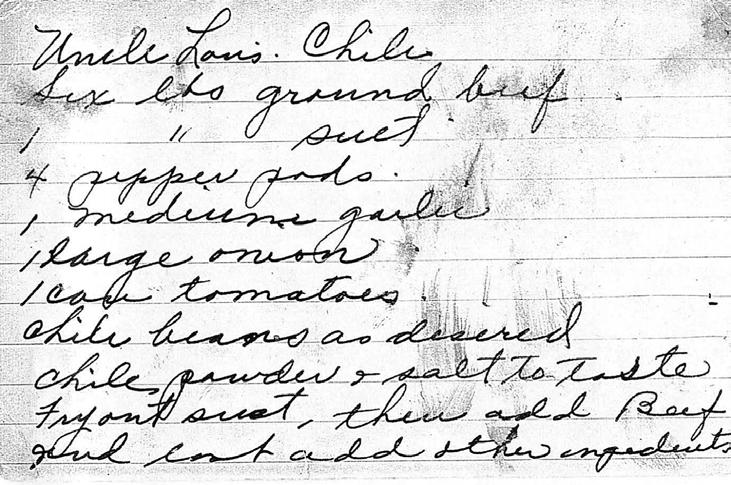 Uncle Louis. Chile
Six lbs ground beef
1 " suet
4 pepper pods.
1 medium garlic
1 large onion
1 can tomatoes
chile beans as desered
chile powder & salt to taste
Fry out suet, then add Beef
and last add other ingredients